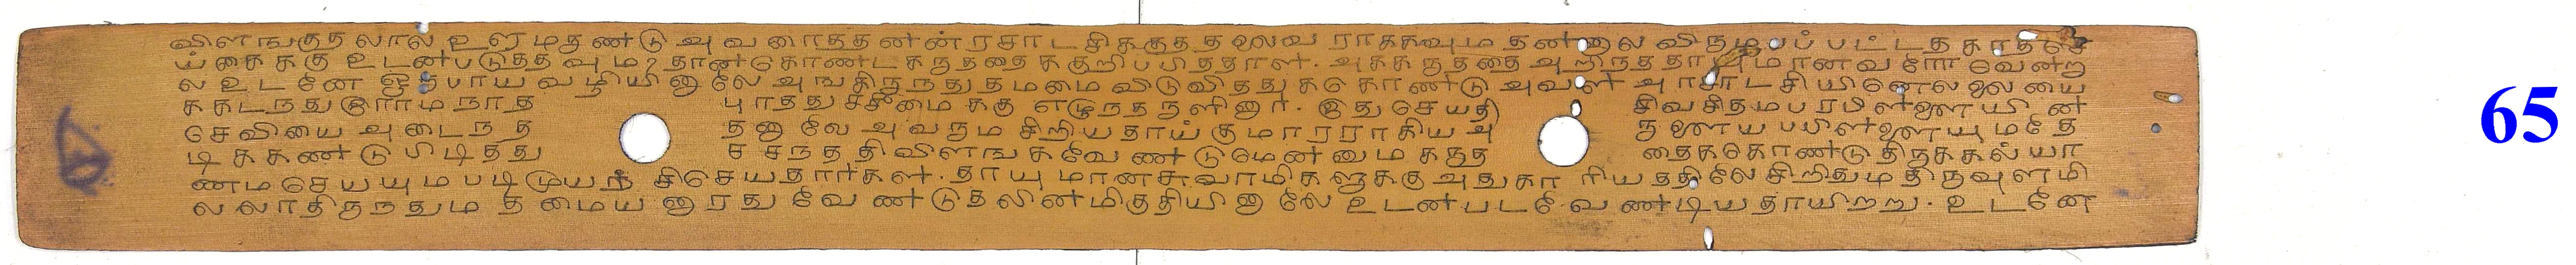 விளஙகுத லால உளமநண்டு அவளாததன்ன்ரசாடசிககுத தலைவ ராககவும தன்னால விருமபப் பட்டத காதசெ
ய்கைககு உடன்படுததவும? தான்கொண்ட கருததைக குறிபபிததாள். அககருததை அறிநததாயுமானவரோ வென்று
ல உடனே ஓருபாய வழியினாலே அஙகிருநது தமமை விடுவிதது ககொண்டு அவள் அரசாடசியினெலலையை
ககடநதுஇராமநாத புரததுசசீமைககு எழுநதருளினார். இதுசெயதி சிவசிதமபரபிள்ளையின்
செவியை அடைநத தனாலே அவரும சிறியதாய்குமாரராகிய அ ருளையபபிள்ளையுமதே
டிககண்டு பிடிதது ச சநததிவிளஙகவேண்டுமென்னும கருத தைககொண்டு திருககல்யா
ணமசெயயுமபடிமுயற் சிசெயதார்கள். தாயுமானசுவாமிகளுககு அதுகா ரியததிலே சிறிதுமதிருவுளமி
லலாதிருநதும தமையனாரது வேண்டுதலின்மிகுதியினாலே உடன்படவேண்டியதாயிறறு. உடனே
65